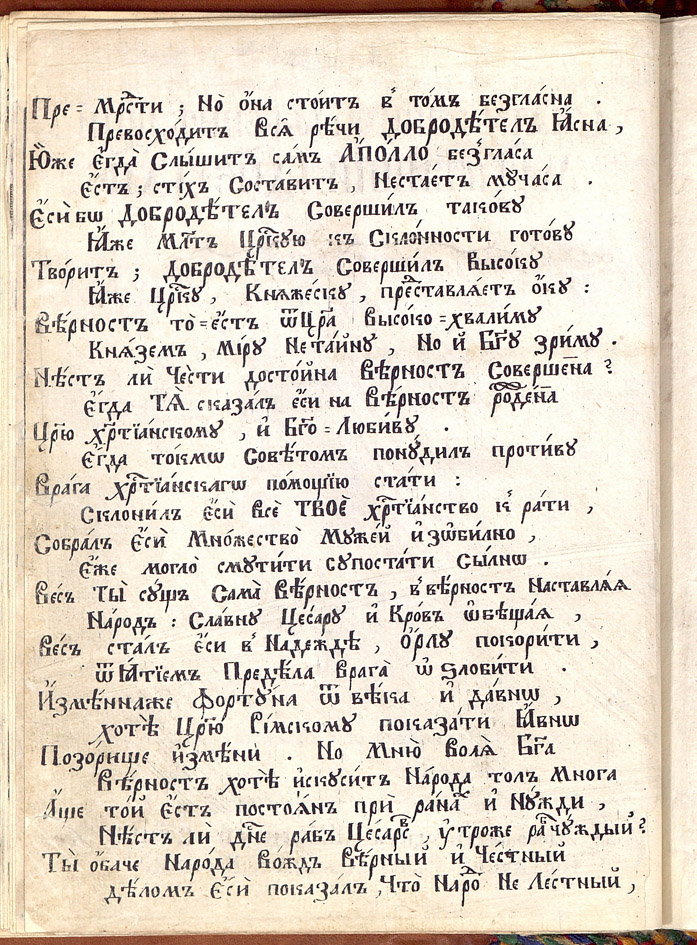 Пре= Мрⷭ҇ти ; Но̀ ѻ҆на стои́тъ в̾ то́мъ безгла́сна .
Превосхо́дитъ всѧ̑ рѣ́чи Добродѣ́тель Ꙗ҆́сна ,
Ю҆́же Е҆гда̀ Слы́шитъ са́мъ А҆по́лло без̾гла́са
Е҆́стъ ; сті́хъ Соста́витъ , Нестае́тъ мꙋ̀ часа .
Е҆сѝ бѡ Добродѣ́телъ Соверши́лъ тако́вꙋ
Ꙗ҆́же Млⷭ҇тъ Црⷭ҇кꙋю къ Скло́нности гото́вꙋ
Тво́ритъ ; Добродѣ́телъ Соверши́лъ Высо́кꙋ
Ꙗ҆́же Црⷭ҇кꙋ , Кнѧ́жескꙋ , преⷣставлѧ́етъ ѻ҆́кꙋ :
Вѣ́рностъ то̀=е҆стъ ѿ Цр҃а̀ Высо́ко=хвали́мꙋ
Кнѧ́земъ , Мі́рꙋ Нета́йнꙋ , Но и҆ Бг҃ꙋ зри́мꙋ .
Нѣ́стъ лѝ Че́сти досто́йна Вѣ́рностъ Соверше́нна ?
Е҆гда̀ Тѧ̀ сказа́лъ е҆сѝ на Вѣ́рностъ рожде́нна
Цр҃ю̀ хрⷭ҇тїа́нскомꙋ , и҆ Бг҃о=Люби́вꙋ .
Е҆гда̀ то́кмѡ Совѣ́томъ понꙋ́дилъ проти́вꙋ
Врага̀ хрⷭ҇тїа́нскагѡ по́мощїю ста́ти :
Склони́лъ Е҆сѝ Всѐ ТВОЀ хрⷭ҇тїа́нство к̾ ра́ти ,
Собра́лъ Е҆сѝ Мно́жество Мꙋже́й и҆зѡби́лно ,
Е҆́же могло̀ смꙋти́ти сꙋпоста́ти Сы́лнѡ .
Ве́съ Ты̀ сꙋ́щъ Сама̀ Вѣ́рностъ , в̾ вѣ́рностъ Наставлѧ́ѧ
На́родъ : Сла́внꙋ Це́сарꙋ и҆ Кро́въ ѡ҆бѣща́ѧ ,
Ве́съ ста́лъ е҆сѝ в̾ Наде́ждѣ , Ѻ҆́рлꙋ покори́ти ,
Ѿѧ́тїемъ Предѣ́ла врага̀ ѡ҆ѕло́бити .
И҆змѣ́нна же фортꙋ́на ѿ вѣ́ка и҆ да́внѡ ,
хотѣ̀ Цр҃ю̀ Ри́мскомꙋ показа́ти Ꙗ҆́внѡ
Позо́рище и҆змѣ́ни . Но Мню̀ Во́лѧ Бг҃а
Вѣ́рностъ хотѣ̀ и҆скꙋси́тъ На́рода то́лъ Мно́га
А҆́ще то́й Е҆́стъ постоѧ́нъ прѝ ра́наⷯ и҆ Нꙋ́жди ,
Нѣ́стъ ли дн҃е ра́бъ Це́сарⷭ҇в , ꙋ҆́троже чꙋ́ждый ?
Ты̀ ѻ҆ба́че На́рода Во́ждъ Вѣ́рный и҆ Че́стный
дѣ́ломъ Е҆сѝ показа́лъ , Что̀ На́роⷣ Не Ле́стный ,